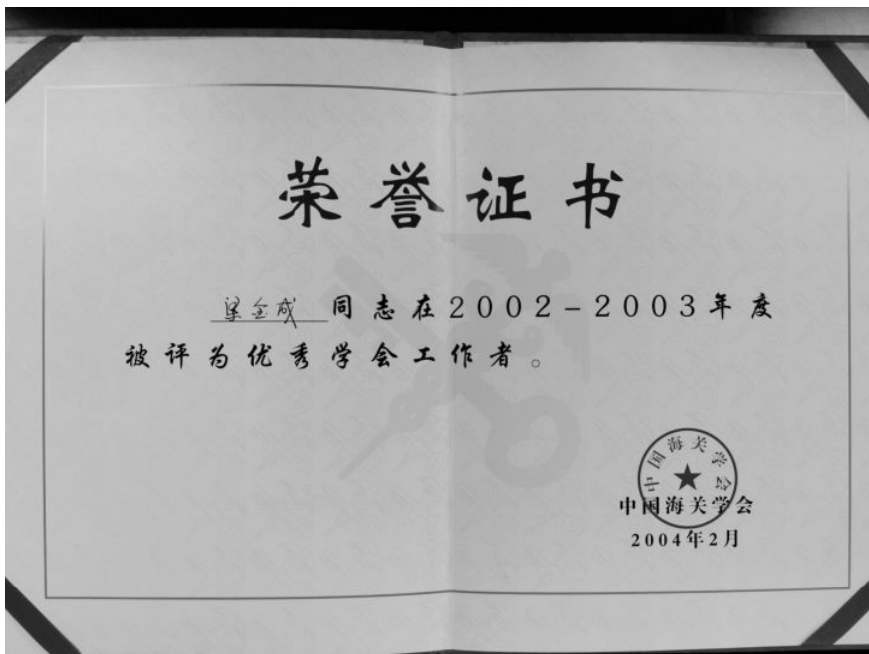 荣誉证书
梁金成同志在2002-2003年度
被评为优秀学会工作者。
中国海关学会
中国海关学会
2004年2月